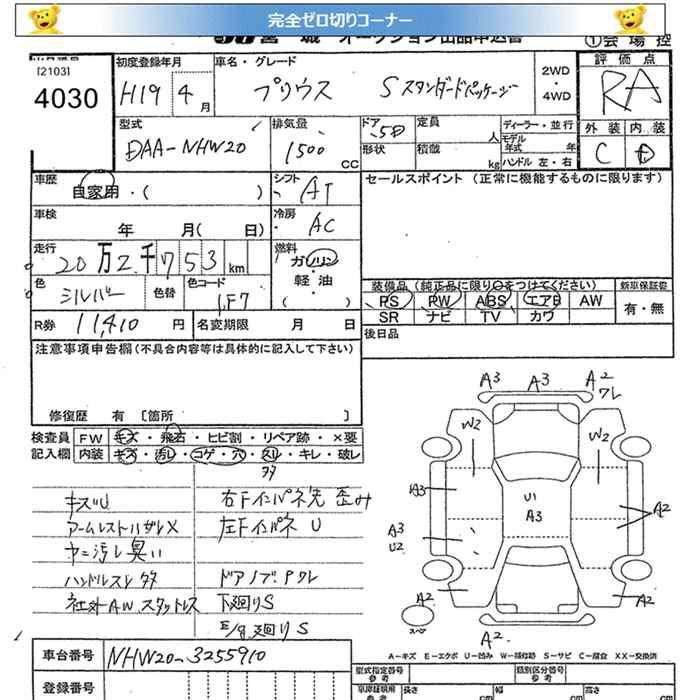 完全ゼロ切りコーナー
宮城 オークション出品申込書
①会場控
[2103]
4030
初度登録年月
H19 4月
車名・グレード
プリウス Sスタンダードパッケージ
2WD
・
4WD
評価点
RA
外装 内装
C D
型式
DAA-NHW20
排気量
1500
CC
ドア 5D
形状
定員
人
積載
kg
ディーラー・並行
モデル年式 年
ハンドル 左・右
車歴
自家用・( )
シフト
AT
セールスポイント (正常に機能するものに限ります)
車検
年 月( 日)
冷房
AC
走行
20万2千753km
燃料
ガソリン
軽油
( )
色
シルバー
色替
色コード
1F7
装備品 (純正品に限り○をつけてください)
新車保証書
PS PW ABS エアB AW
有・無
SR ナビ TV カワ
R券 11,410 円
名変期限 月 日
後日品
注意事項申告欄(不具合内容等は具体的に記入して下さい)
修復歴 有 [箇所 ]
検査員 FW キズ・飛石・ヒビ割・リペア跡・×要
記入欄 内装 キズ・汚レ・コゲ・穴・スレ・キレ・破レ
タタ
キズU
右Fインパネ先 歪み
アームレストハガレ×
左Fインパネ U
ヤニ汚レ臭い
ハンドルスレ タタ
ドアノブ・Pワレ
社外AW スタットレス
下廻りS
E/g廻りS
A3 A3 A2
ワレ
W2 W2
A3 U1 A3 A2
A3
U2
A2 A2
A2
スペア
A-キズ E-エクボ U-凹み W-補修跡 S-サビ C-腐食 XX-交換済
車台番号 NHW20-3255910
登録番号
型式指定番号
参考
類別区分番号
参考
車庫証明用
参考
長さ cm 幅 cm 高さ cm